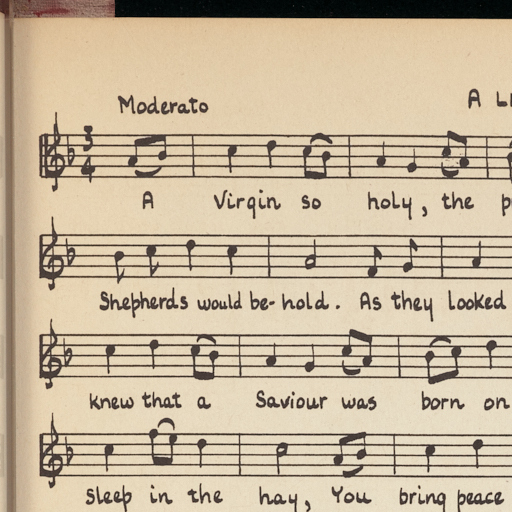 Moderato
A
3
4
A Virgin so holy, the
Shepherds would be-hold. As they looked
knew that a Saviour was born on
sleep in the hay, You bring peace